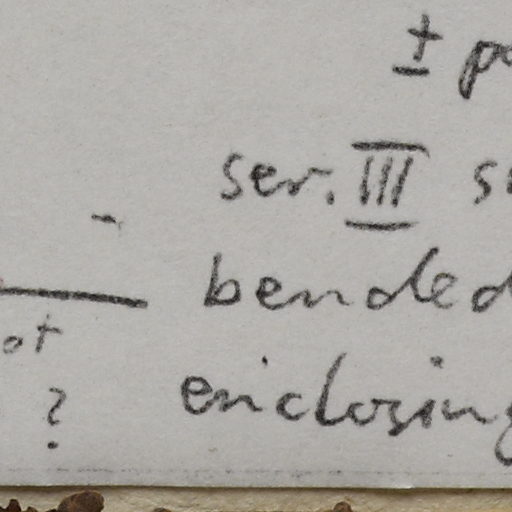 ±
ser. III
bended
ot
? enclosing